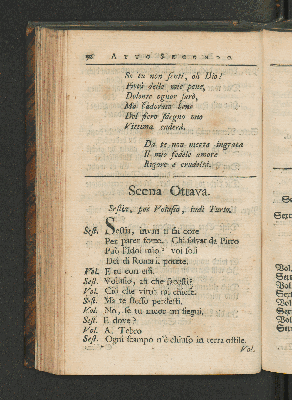 50 ATTO SECONDO
Se tu non senti, oh Dio!
Pietà delle mie pene,
Dolente ognor sarò,
Ma l'adorato bene
Del fiero sdegno tuo
Vittima caderà.
Da te non merta ingrata
Il mio fedele amore
Rigore e crudeltà.
Scena Ottava.
Sestia, poi Volusio, indi Turio.
Sest. Sestia, invan ti fai core
Per parer forte. Chi salvar da Pirro
Può l'idol mio? voi soli
Dei di Roma il potete.
Vol. E tu con essi.
Sest. Volusio, ah che facesti?
Vol. Ciò che virtù tai chiese.
Sest. Ma te stesso perdesti.
Vol. No, se tu meco mi siegui.
Sest. E dove?
Vol. A Tebro
Sest. Ogni scampo n'è chiuso in terra ostile.
Vol.